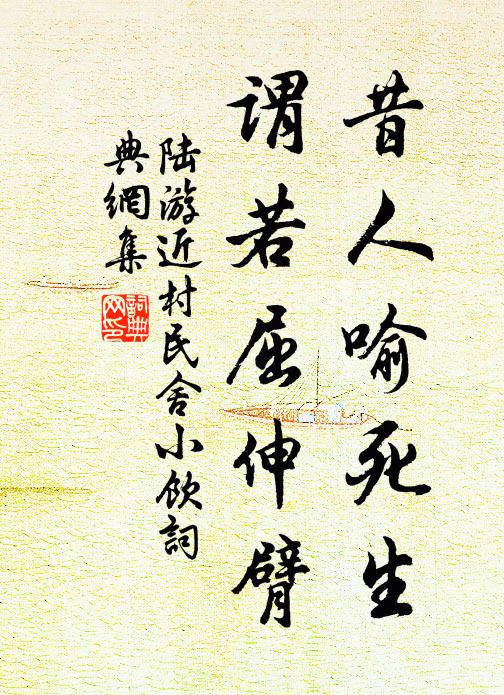 昔人喻死生
謂若屈伸臂
陸游近村民舍小飲詞
典網集
詞典
网印